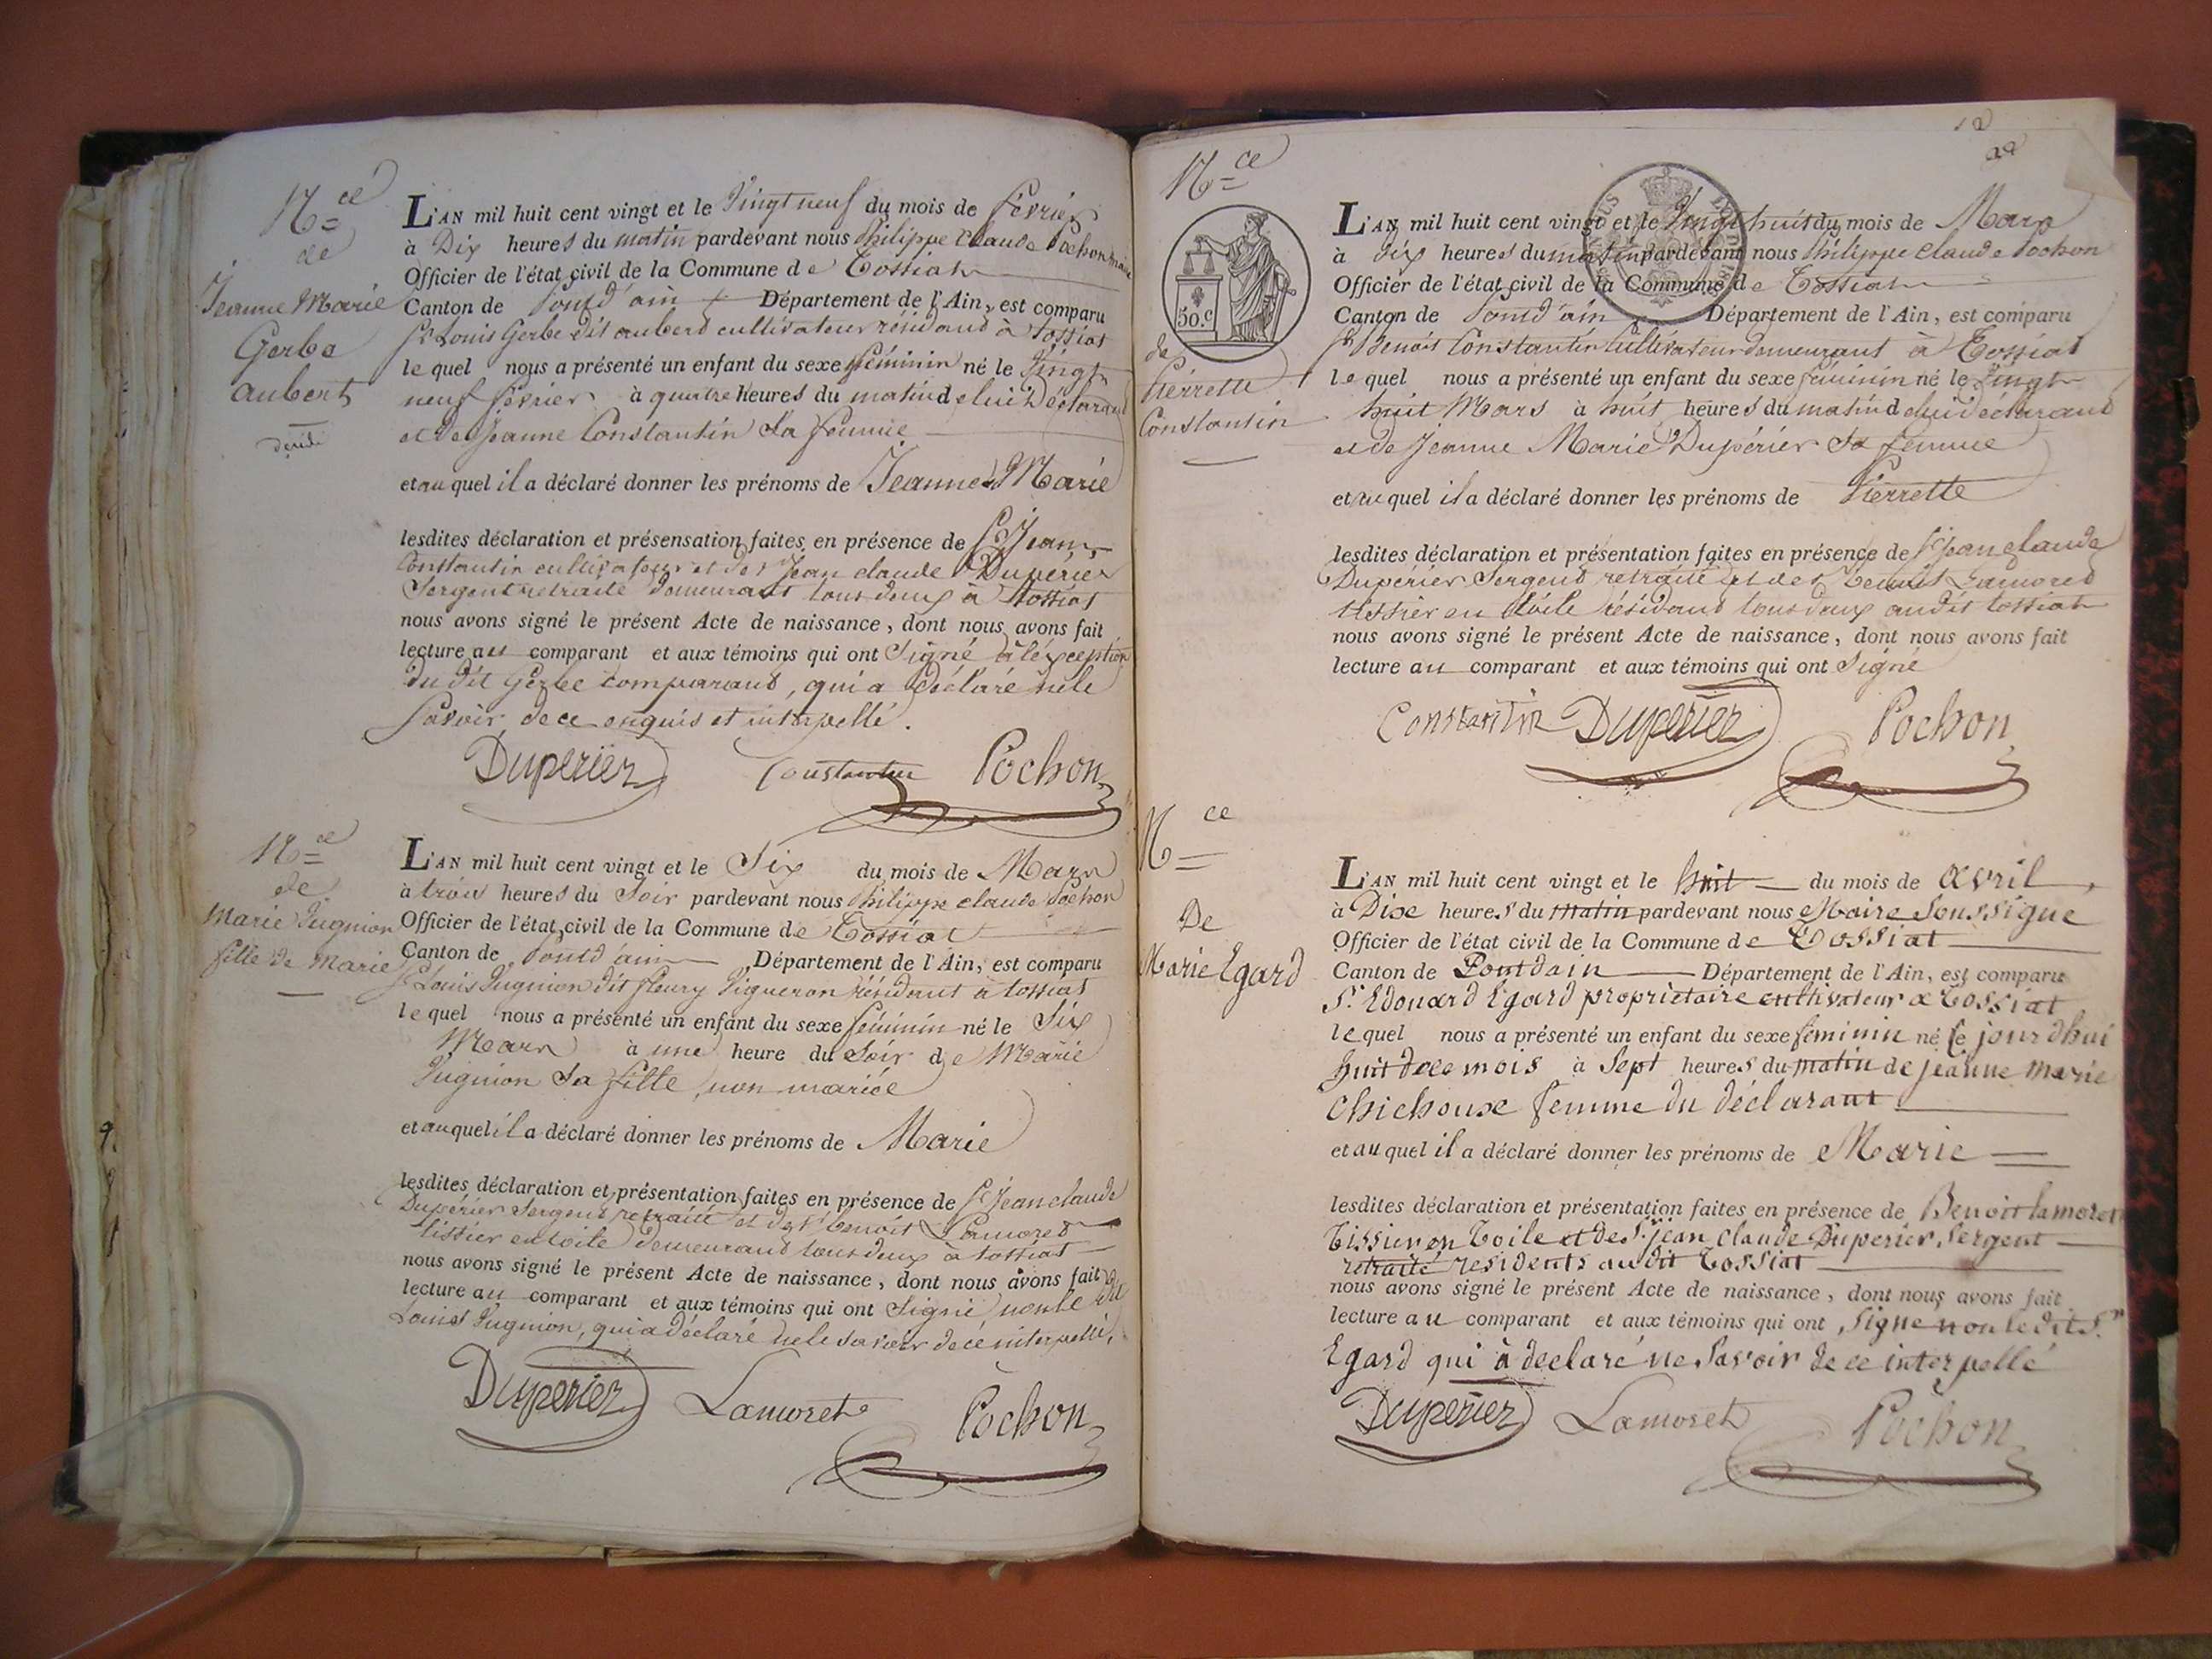 N.ce
de
Jeanne Marie
Gerbe
aubert
L'AN mil huit cent vingt et le Vingt neuf du mois de fevrier
à Dix heures du matin pardevant nous Philippe Claude Pochon maire
Officier de l'état civil de la Commune de Tossiat
Canton de Pont d'ain Département de l'Ain, est comparu
Sr Louis Gerbe dit aubert cultivateur résidant à tossiat
lequel nous a présenté un enfant du sexe féminin né le Vingt
neuf fevrier à quatre heures du matin de lui Déclarant
et de Jeanne Constantin Sa femme
et auquel il a déclaré donner les prénoms de Jeanne Marie
lesdites déclaration et présensation faites en présence de Sr Jean
Constantin cultivateur et de Sr Jean claude Duperier
Sergent retraité demeurant tous deux à tossiat
nous avons signé le présent Acte de naissance, dont nous avons fait
lecture au comparant et aux témoins qui ont Signé à l'éxception
du dit Gerbe comparant, qui a Déclaré ne le
Savoir de ce enquis et interpellé.
Duperier Constantin Pochon
N.ce
de
Marie Jugnion
fille de Marie
L'AN mil huit cent vingt et le Six du mois de Mars
à trois heures du Soir pardevant nous Philippe claude Pochon
Officier de l'état civil de la Commune de Tossiat
Canton de Pont d'ain Département de l'Ain, est comparu
Sr Louis Jugnion dit fleury Vigneron résidant à tossiat
lequel nous a présenté un enfant du sexe féminin né le Six
Mars à une heure du Soir de Marie
Jugnion Sa fille, non mariée
et auquel il a déclaré donner les prénoms de Marie
lesdites déclaration et présentation faites en présence de Sr Jean claude
Dupérier Sergent retraité et de Sr benoit Lamoret
tissier en toile demeurant tous deux à tossiat
nous avons signé le présent Acte de naissance, dont nous avons fait
lecture au comparant et aux témoins qui ont Signé non le dit
Louis Jugnion, qui a déclaré ne le savoir de ce interpellé.
Duperier Lamoret Pochon
12
22
N.ce
50.c
de
Pierrette
Constantin
L'AN mil huit cent vingt et le Vingt huit du mois de Mars
à dix heures du matin pardevant nous Philippe claude Pochon
Officier de l'état civil de la Commune de Tossiat
Canton de Pont d'ain Département de l'Ain, est comparu
Sr Benoit Constantin Cultivateur demeurant à Tossiat
lequel nous a présenté un enfant du sexe féminin né le Vingt
huit Mars à huit heures du matin de lui déclarant
et de Jeanne Marie Dupérier Sa femme
et auquel il a déclaré donner les prénoms de Pierrette
lesdites déclaration et présentation faites en présence de Sr Jean claude
Duperier Sergent retraité et de Sr Benoit Lamoret
tissier en toile résidant tous deux audit tossiat
nous avons signé le présent Acte de naissance, dont nous avons fait
lecture au comparant et aux témoins qui ont Signé
Constantin Duperier Pochon
N.ce
De
Marie Egard
L'AN mil huit cent vingt et le huit du mois de avril
à Dixe heures du matin pardevant nous Maire Soussigne
Officier de l'état civil de la Commune de Tossiat
Canton de Pontdain Département de l'Ain, est comparu
Sr. Edouard Egard proprietaire cultivateur a Tossiat
lequel nous a présenté un enfant du sexe feminin né Ce jourdhui
huit de ce mois à Sept heures du matin de jeanne Marie
Chichoux femme du déclarant
et auquel il a déclaré donner les prénoms de Marie
lesdites déclaration et présentation faites en présence de Benoit lamoret
Tissier en Toile et de Sr. jean Claude Duperier, Sergent
retraité residents audit Tossiat
nous avons signé le présent Acte de naissance, dont nous avons fait
lecture au comparant et aux témoins qui ont Signe non le dit Sr.
Egard qui à declaré ne Savoir de ce interpellé
Duperier Lamoret Pochon